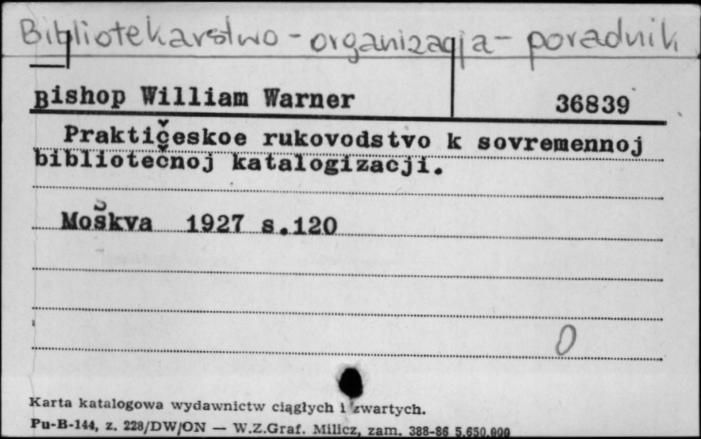 Bibliotekarstwo - organizacja - poradnik
Bishop William Warner 36839
Praktičeskoe rukovodstvo k sovremennoj
bibliotečnoj katalogizacji.
Moškva 1927 s.120
0
Karta katalogowa wydawnictw ciągłych i zwartych.
Pu-B-144, z. 228/DW/ON — W.Z.Graf. Milicz, zam. 388-86 5.650.000